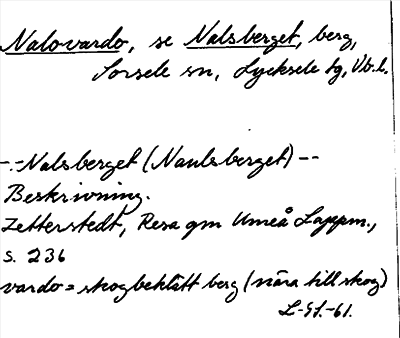 Nalovardo, se Nalsberget, berg,
Sorsele sn, Lycksele lg, Vb. l.
-.-Nalsberget (Naulsberget) --
Beskrivning.
Zetterstedt, Resa gm Umeå Lappm.,
s. 236
vardo = skogbeklätt berg (nära till skog)